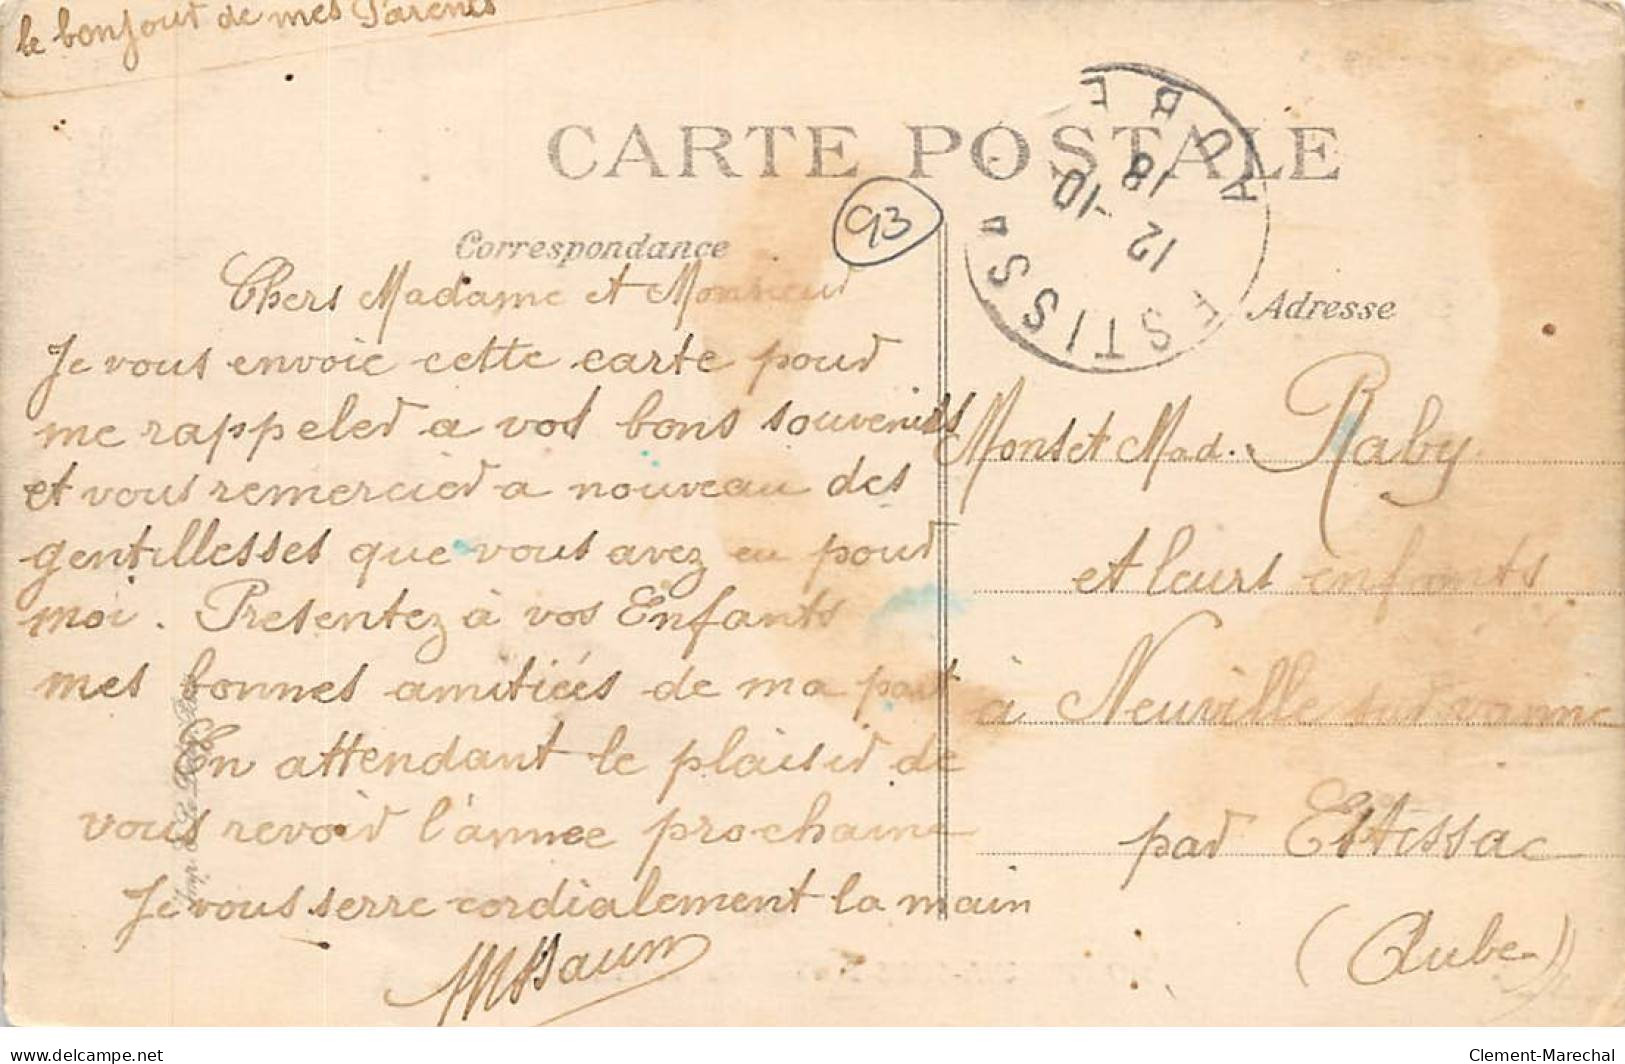 le bonjour de mes Parents
CARTE POSTALE
Correspondance
93
AUBE
18
12 -10
ESTISSA
Adresse
Chers Madame et Monsieur
Je vous envoie cette carte pour
me rappeler a vos bons souvenirs
et vous remercier a nouveau des
gentillesses que vous avez eu pour
moi. Presentez à vos Enfants
mes bonnes amitiées de ma part
En attendant le plaisir de
vous revoir l'année prochaine
Je vous serre cordialement la main
Mons et Mad. Raby
et leurs enfants
à Neuville sur vanne
par Estissac
(Aube)
delcampe.net
Clement-Marechal